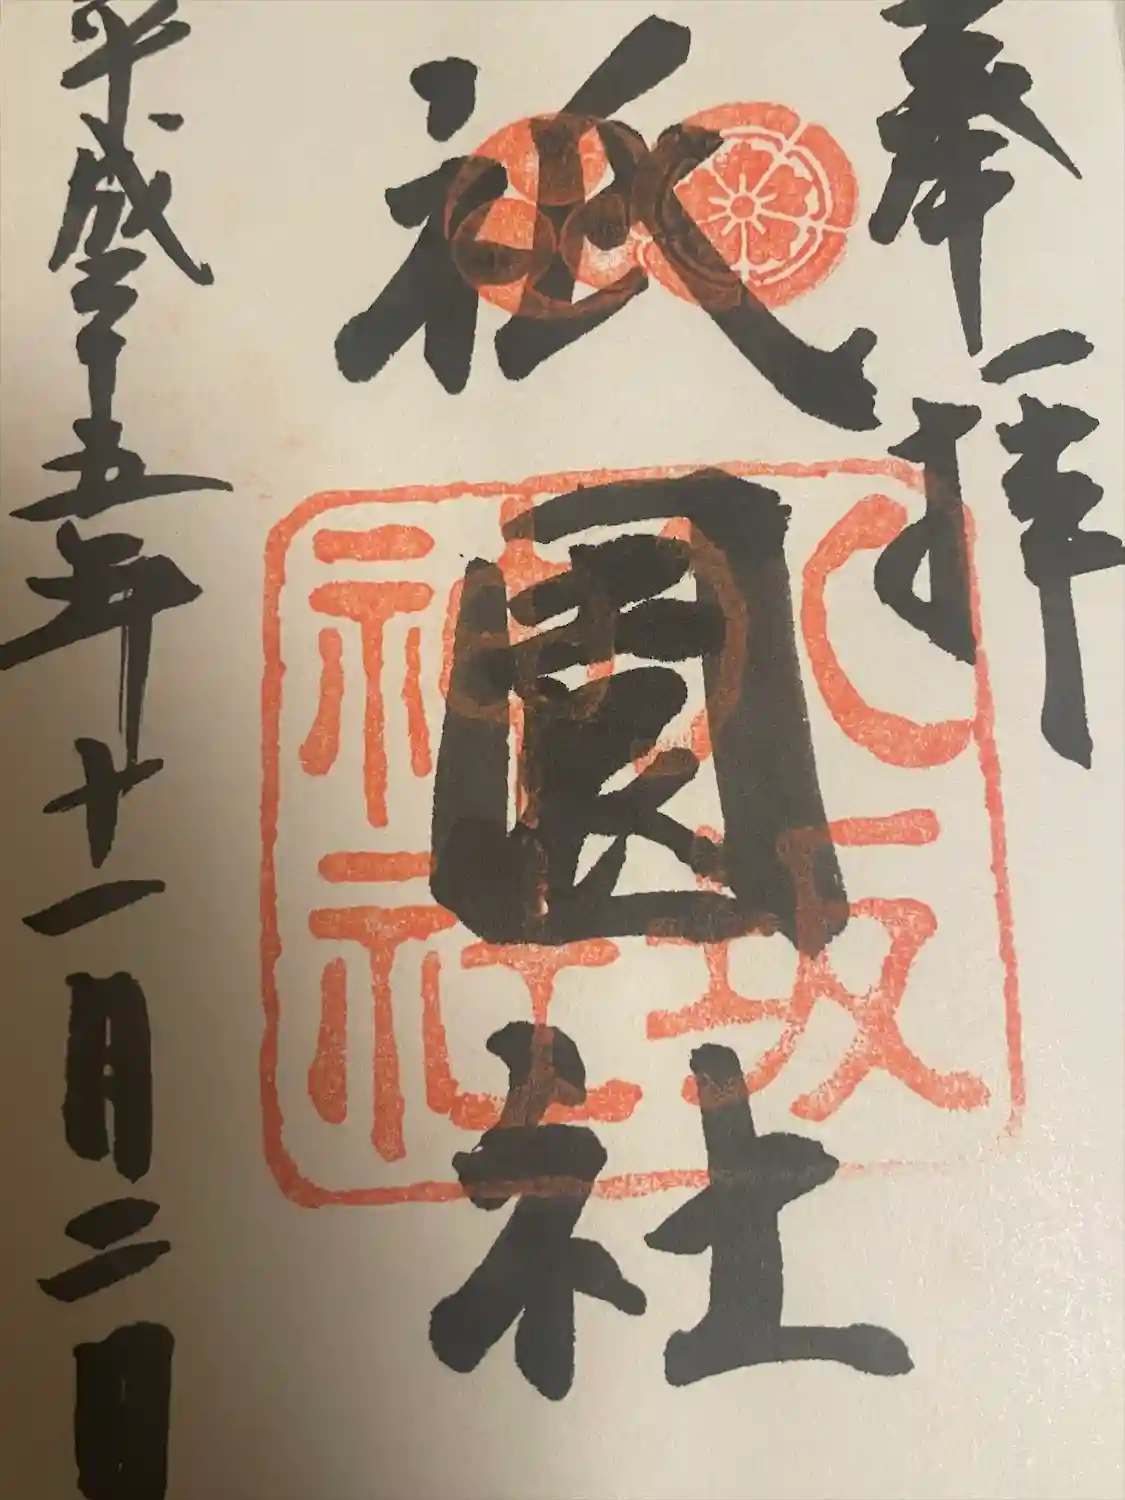 奉拝
祇園社
八坂
神社
平成二十五年十一月二日